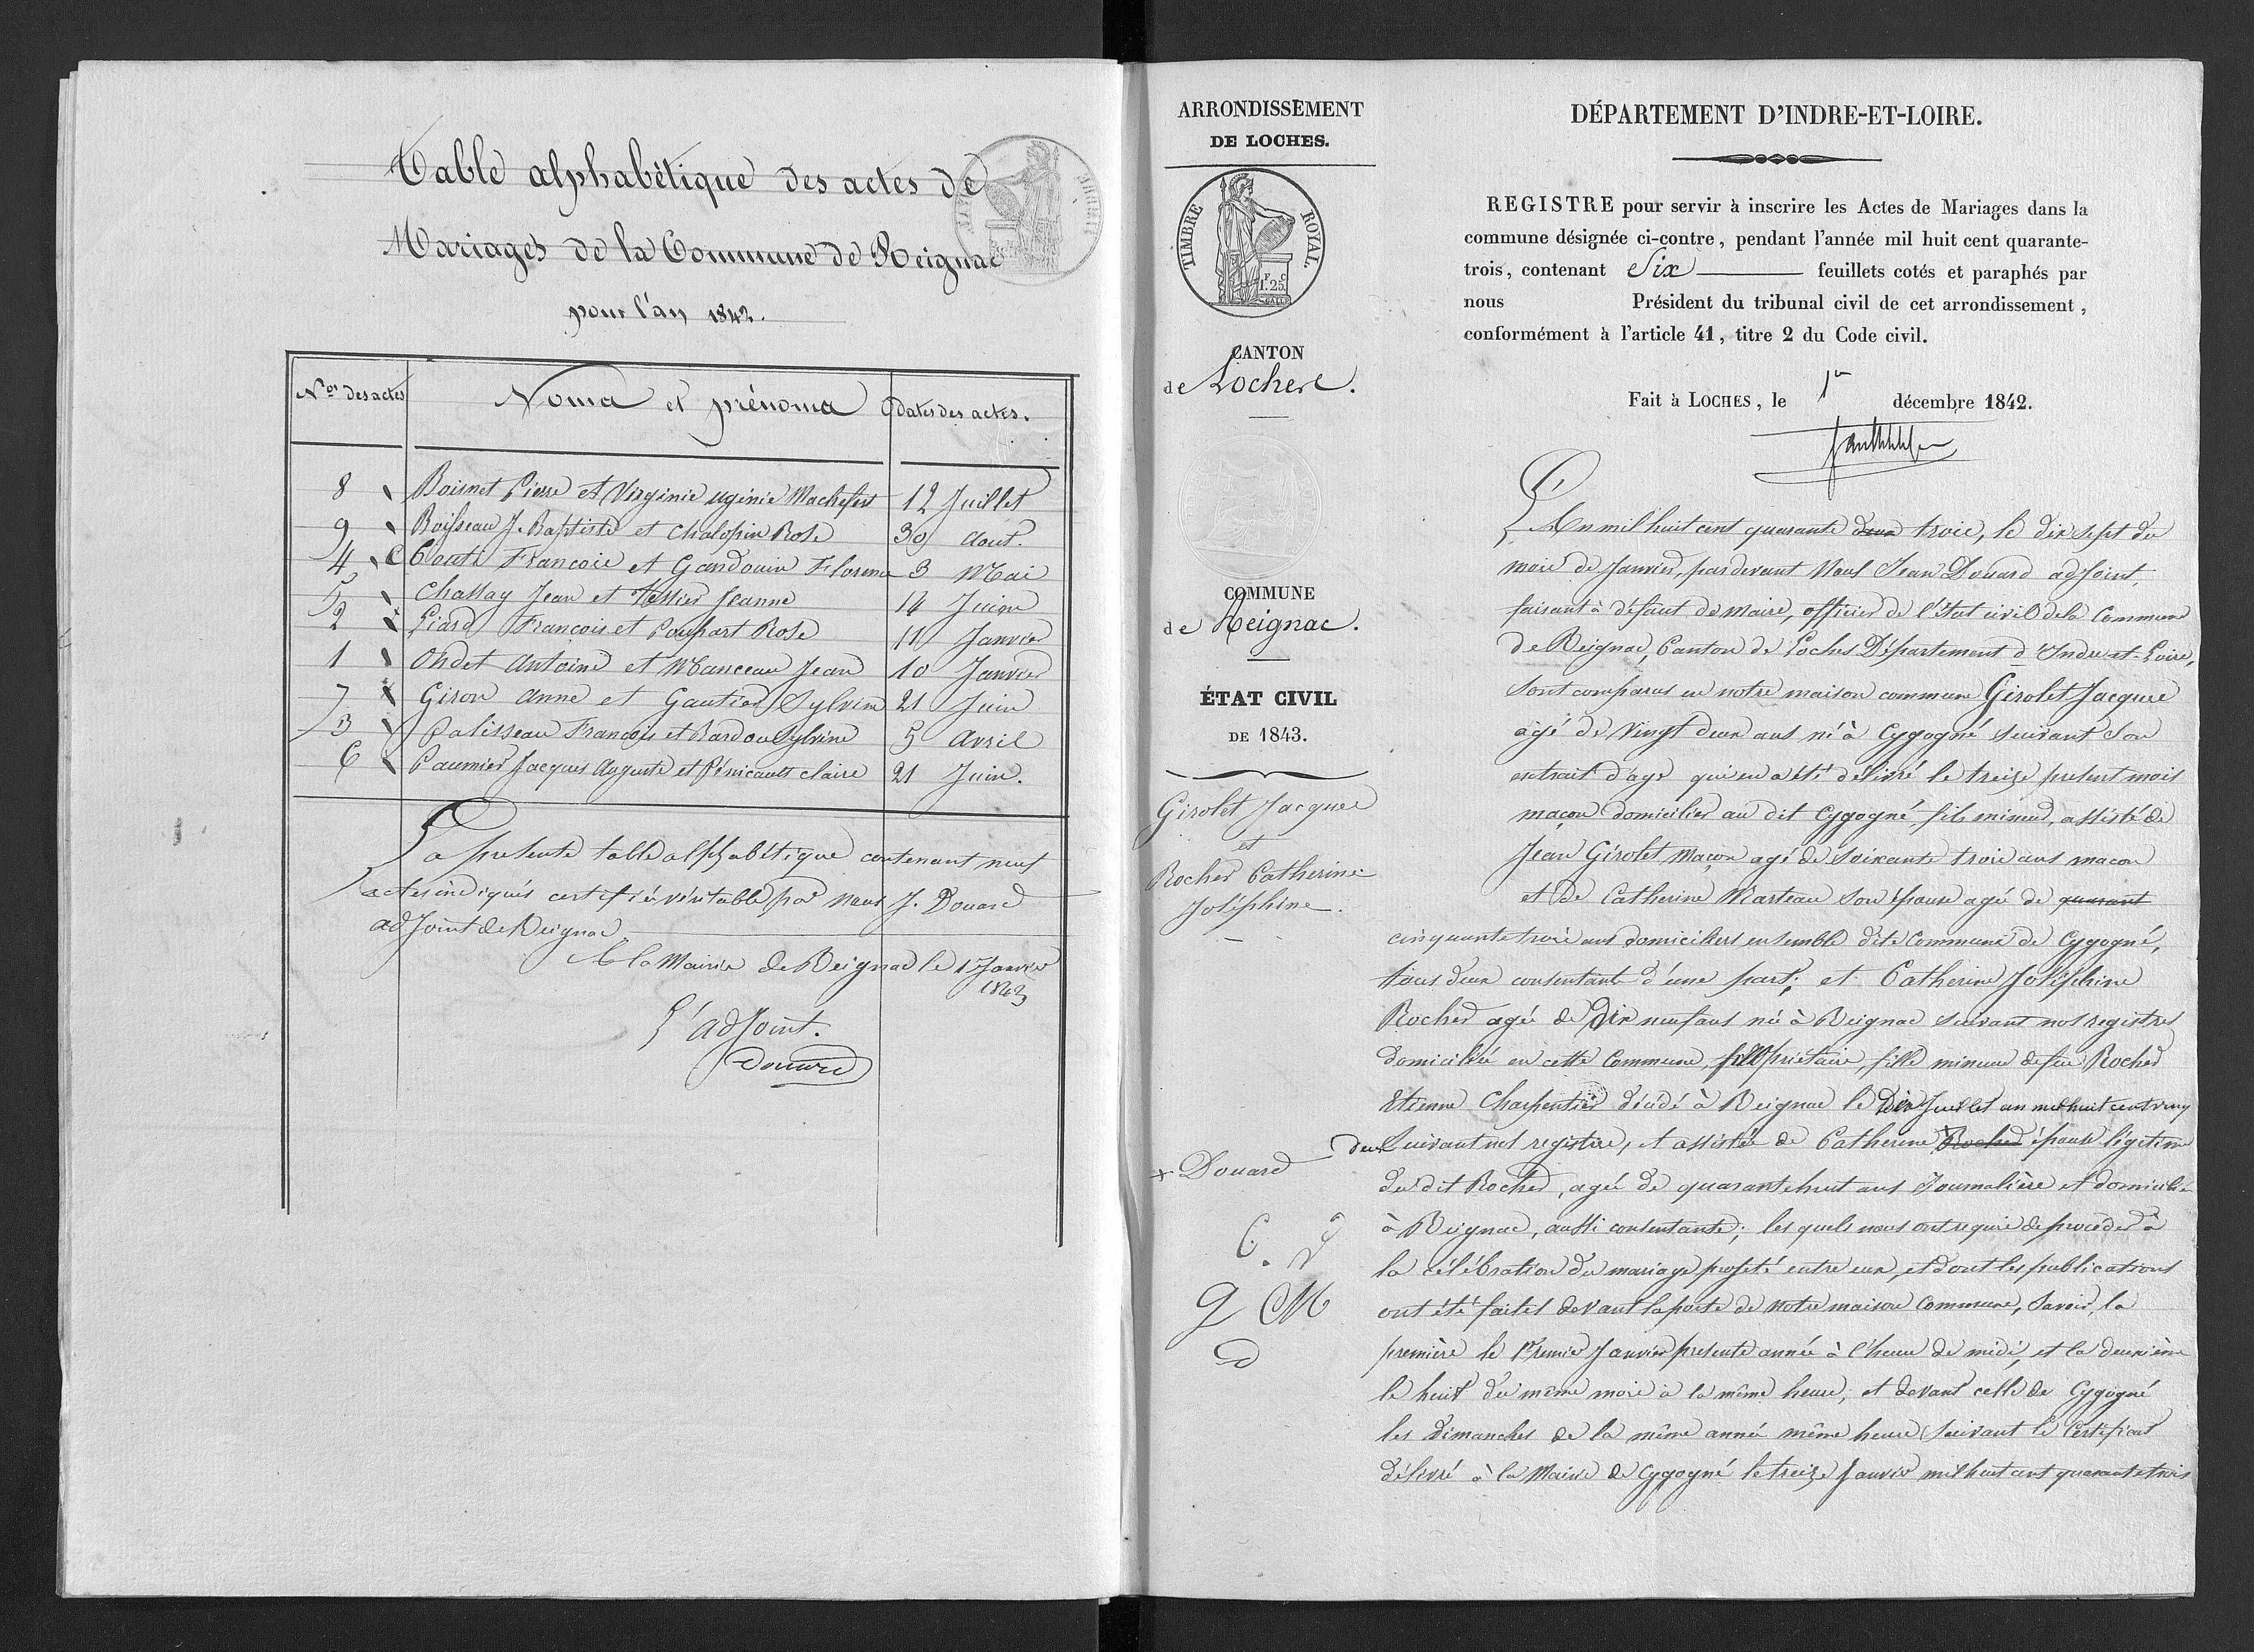 Table alphabétique des actes de
Mariages de la Commune de Reignac
pour l'an 1842.
Nos des actes
Noms et prénoms
dates des actes.
8 Boisnet Pierre et Virginie ugénie Machefert 12 Juillet
9 Boisseau J. Baptiste et Chalopin Rose 30 Aout.
4 François et Gandouin Florence 3 Mai
5 Chassay Jean et Tessier Jeanne 14 Juin
2 Giard François et Poupart Rose 11 Janvier
1 Ondet Antoine et Manceau Jean 10 Janvier
7 Giron Anne et Gautier Sylvin 21 Juin
3 Palisseau François et Bardou Sylvine 5 Avril
6 Paumier Jacques Auguste et Pénicault claire 21 Juin.
La presente table alphabétique contenant neuf
actes indiqués certifiée véritable par nous J. Douard
adjoint de Reignac
A la Mairie de Reignac le 1 Janvier
1843
L'adjoint.
Douard
ARRONDISSEMENT
DE LOCHES.
TIMBRE ROYAL.
F. C.
1. 25.
CANTON
de Loches.
COMMUNE
de Reignac.
ÉTAT CIVIL
DE 1843.
Girolet Jacques
et
Rocher Catherine
Joséphine.
x Douard
C. J
G CM
D
DÉPARTEMENT D'INDRE-ET-LOIRE.
REGISTRE pour servir à inscrire les Actes de Mariages dans la
commune désignée ci-contre, pendant l'année mil huit cent quarante-
trois, contenant Six feuillets cotés et paraphés par
nous Président du tribunal civil de cet arrondissement,
conformément à l'article 41, titre 2 du Code civil.
Fait à LOCHES, le 1er décembre 1842.
L'An mil huit cent quarante deux trois, le dix sept du
mois de Janvier, pardevant Nous Jean Douard adjoint,
faisant à défaut de maire, officier de l'Etat civil de la Commune
de Reignac, Canton de Loches Département d'Indre-et-Loire,
sont comparus en notre maison commune Girolet Jacques
agé de vingt deux ans né à Cygogné suivant son
extrait d'age qui en a été délivré le treize present mois
maçon domicilier au dit Cygogné fils mineur, assisté de
Jean Girolet Maçon agé de soixante trois ans macon
et de Catherine Marteau son épouse agé de quarant
cinquante trois ans domiciliers ensemble dite Commune de Cygogné,
tous deux consentant d'une part; et Catherine Joséphine
Rocher agé de Dix neuf ans né à Reignac suivant nos registres
domiciliée en cette Commune, propriétaire, fille mineure de feu Rocher
Etienne Charpentier décédé à Reignac le Dix Juillet an mil huit cent vingt
deux suivant nos registre, et assistée de Catherine Rocher épouse légitime
du dit Rocher, agée de quarante huit ans Journalière et domiciliée
à Reignac, aussi consentante; les quels nous ont requis de procéder à
la célébration du mariage projeté entre eux, et dont les publications
ont été faites devant la porte de notre maison Commune, savoir, la
première le Premier Janvier presente année à l'heure de midi, et la deuxième
le huit du même mois à la même heure, et devant celle de Cygogné
les Dimanches de la même année même heure suivant le Certificat
délivré à la Mairie de Cygogné le treize Janvier mil huit cent quarante trois